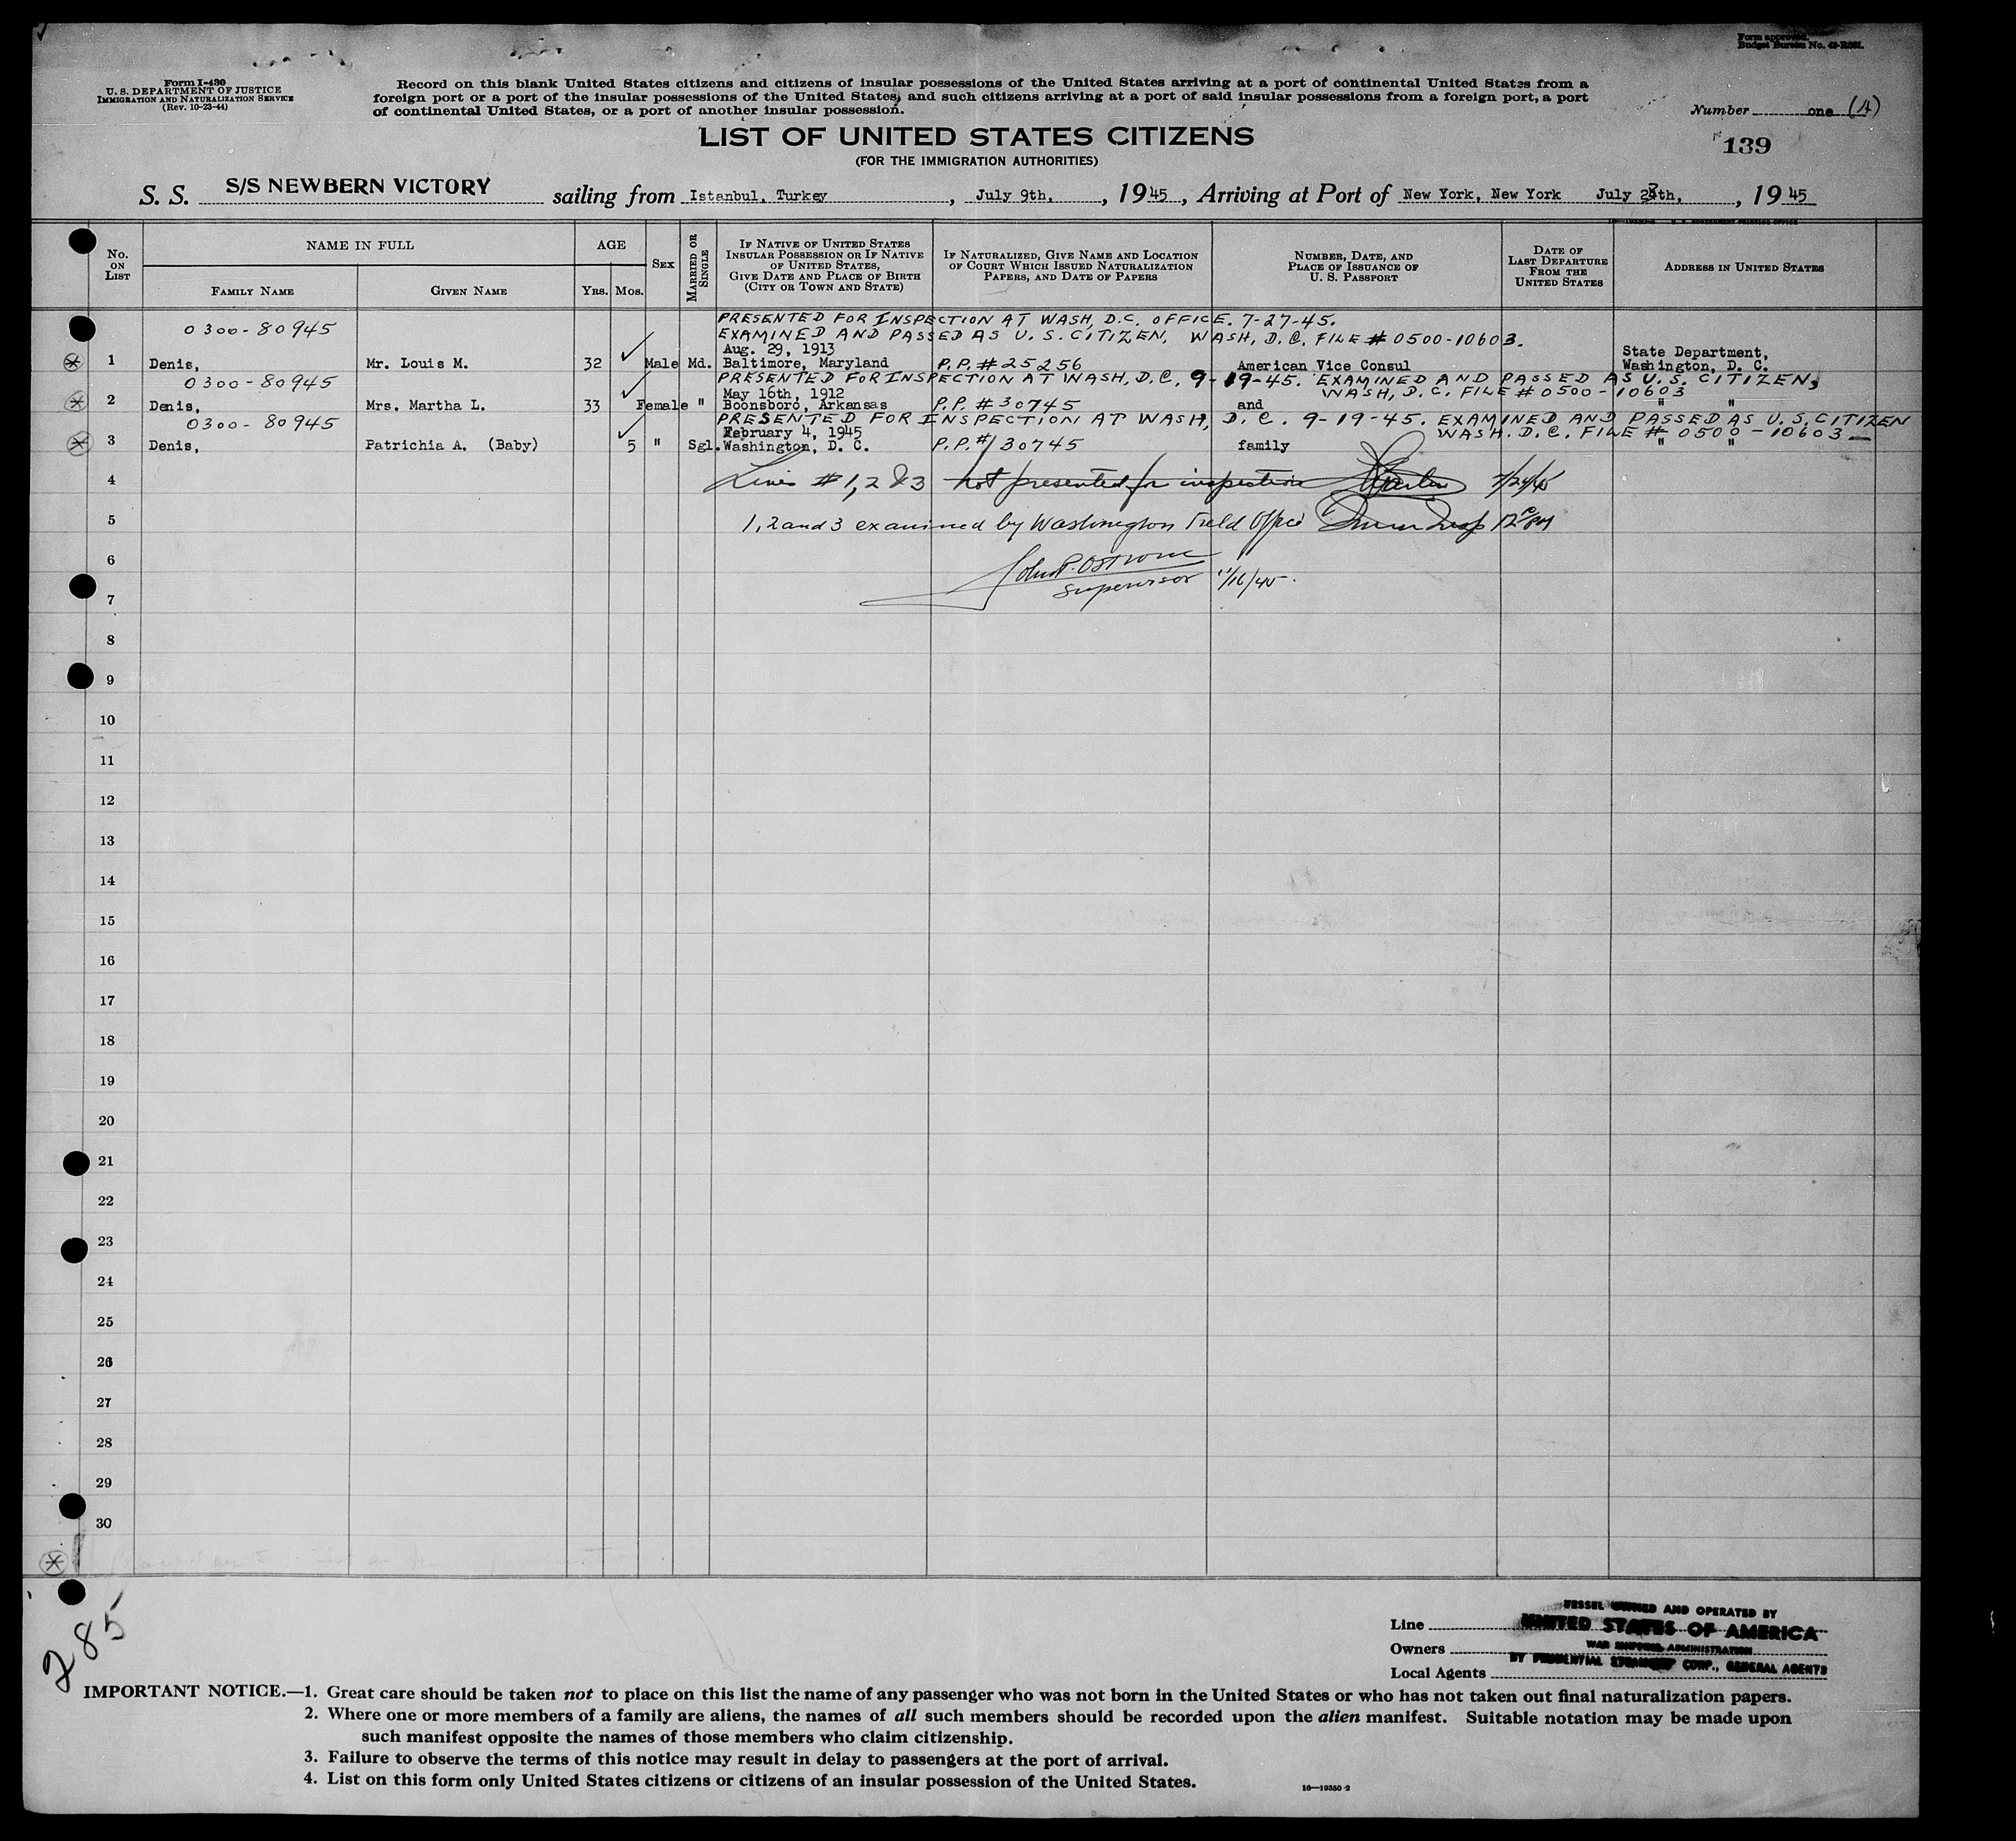 Form approved.
Budget Bureau No. 43-R081.
Form I-430
U. S. DEPARTMENT OF JUSTICE
IMMIGRATION AND NATURALIZATION SERVICE
(Rev. 10-23-44)
Record on this blank United States citizens and citizens of insular possessions of the United States arriving at a port of continental United States from a
foreign port or a port of the insular possessions of the United States, and such citizens arriving at a port of said insular possessions from a foreign port, a port
of continental United States, or a port of another insular possession.
Number one (A)
LIST OF UNITED STATES CITIZENS
139
(FOR THE IMMIGRATION AUTHORITIES)
S. S. S/S NEWBERN VICTORY sailing from Istanbul, Turkey, July 9th, 1945, Arriving at Port of New York, New York July 23th, 1945
No. ON LIST
NAME IN FULL
FAMILY NAME
GIVEN NAME
AGE
YRS. MOS.
SEX
MARRIED OR SINGLE
IF NATIVE OF UNITED STATES
INSULAR POSSESSION OR IF NATIVE
OF UNITED STATES,
GIVE DATE AND PLACE OF BIRTH
(CITY OR TOWN AND STATE)
IF NATURALIZED, GIVE NAME AND LOCATION
OF COURT WHICH ISSUED NATURALIZATION
PAPERS, AND DATE OF PAPERS
NUMBER, DATE, AND
PLACE OF ISSUANCE OF
U. S. PASSPORT
DATE OF
LAST DEPARTURE
FROM THE
UNITED STATES
ADDRESS IN UNITED STATES
PRESENTED FOR INSPECTION AT WASH, D.C. OFFICE. 7-27-45.
0300-80945
EXAMINED AND PASSED AS U. S. CITIZEN, WASH, D. C. FILE # 0500-10603.
Aug. 29, 1913 State Department,
1 Denis, Mr. Louis M. 32 Male Md. Baltimore, Maryland P.P. # 25256 American Vice Consul Washington, D. C.
0300-80945 PRESENTED FOR INSPECTION AT WASH, D.C. 9-19-45. EXAMINED AND PASSED AS U. S. CITIZEN,
May 16th, 1912 WASH, D. C. FILE # 0500-10603
2 Denis, Mrs. Martha L. 33 Female " Boonsboro, Arkansas P.P. # 30745 and " "
0300-80945 PRESENTED FOR INSPECTION AT WASH, D. C. 9-19-45. EXAMINED AND PASSED AS U. S. CITIZEN
February 4, 1945 WASH. D. C. FILE # 0500-10603
3 Denis, Patrichia A. (Baby) 5 " Sgl. Washington, D. C. P.P. # 30745 family " "
4 Lines # 1, 2 & 3 not presented for inspection 7/24/45
5 1, 2 and 3 examined by Washington Field Office
6 John P. Ostrom
Supervisor 11/16/45.
7
8
9
10
11
12
13
14
15
16
17
18
19
20
21
22
23
24
25
26
27
28
29
30
285
VESSEL OWNED AND OPERATED BY
Line UNITED STATES OF AMERICA
Owners WAR SHIPPING ADMINISTRATION
BY PRUDENTIAL STEAMSHIP CORP., GENERAL AGENTS
Local Agents
IMPORTANT NOTICE.—1. Great care should be taken not to place on this list the name of any passenger who was not born in the United States or who has not taken out final naturalization papers.
2. Where one or more members of a family are aliens, the names of all such members should be recorded upon the alien manifest. Suitable notation may be made upon
such manifest opposite the names of those members who claim citizenship.
3. Failure to observe the terms of this notice may result in delay to passengers at the port of arrival.
4. List on this form only United States citizens or citizens of an insular possession of the United States.
16—19350-2